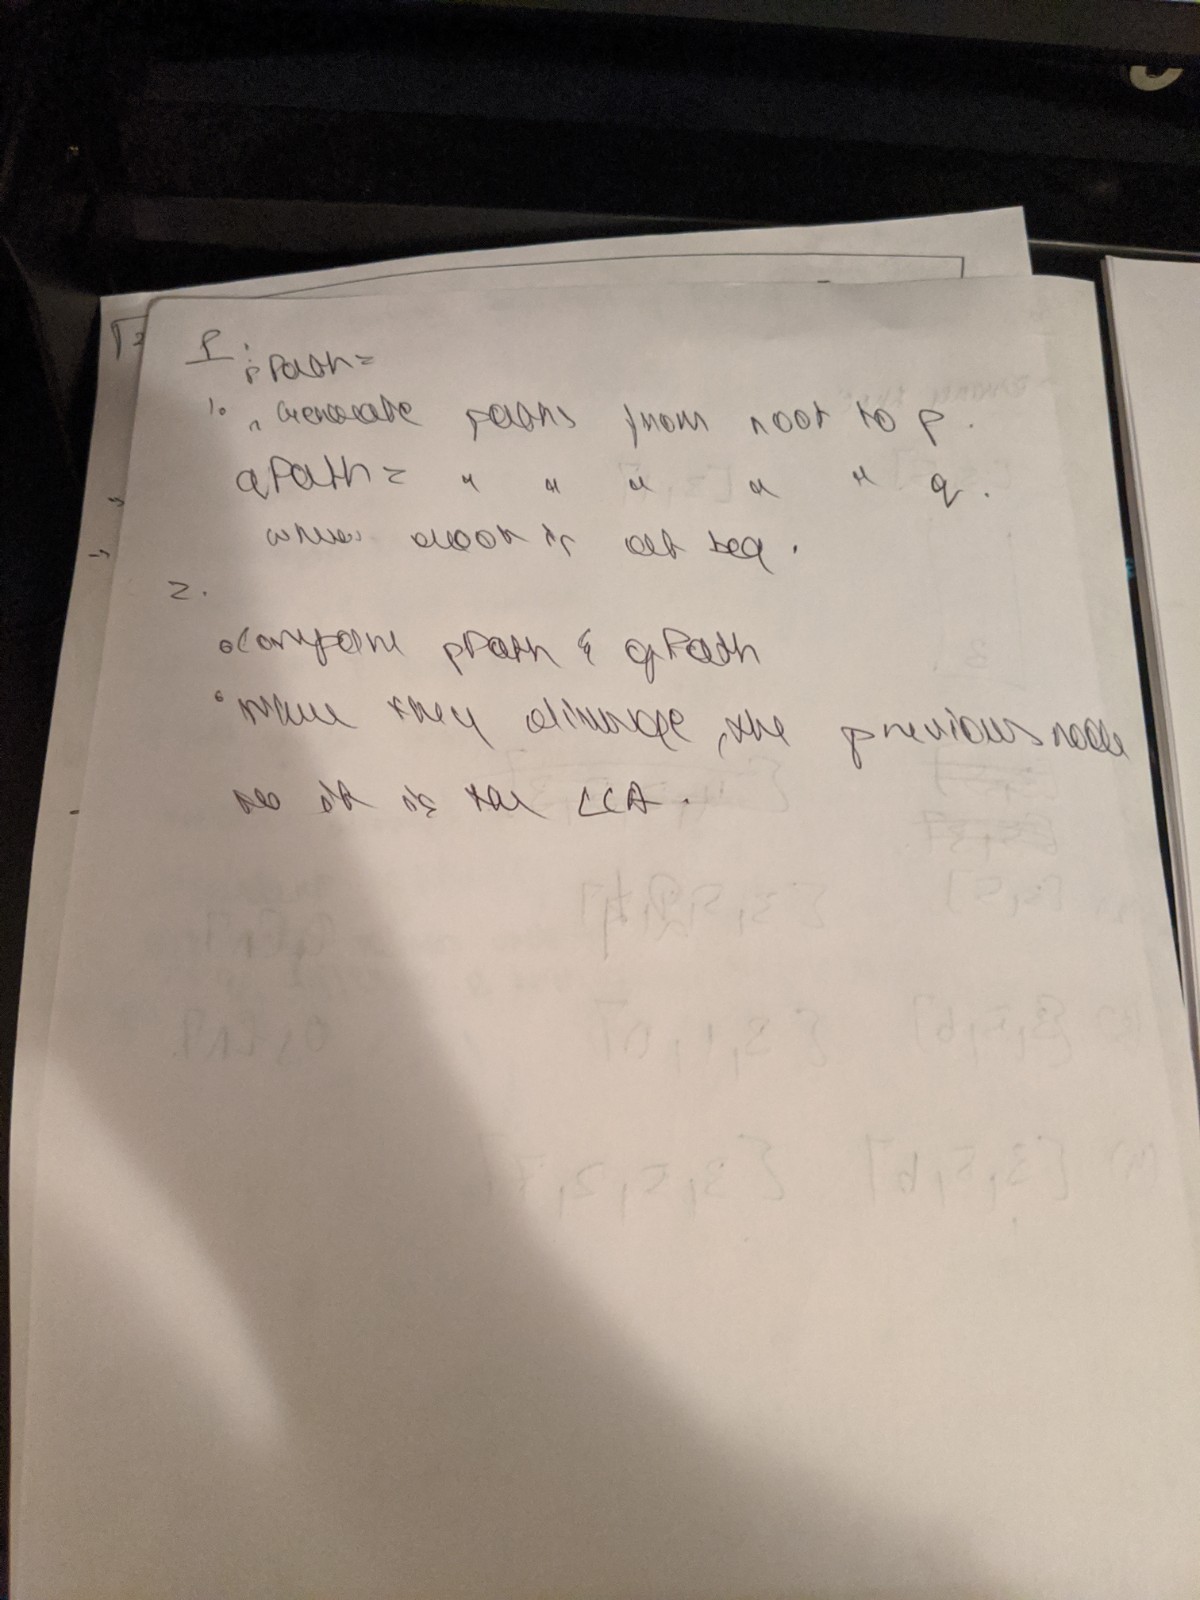 P:
pPath =
1. Generate paths from root to p.
qPath = " " " " " q.
where root is at beg.
2.
• Compare pPath & qPath
• where they diverge, the previous node
to it is the LCA.